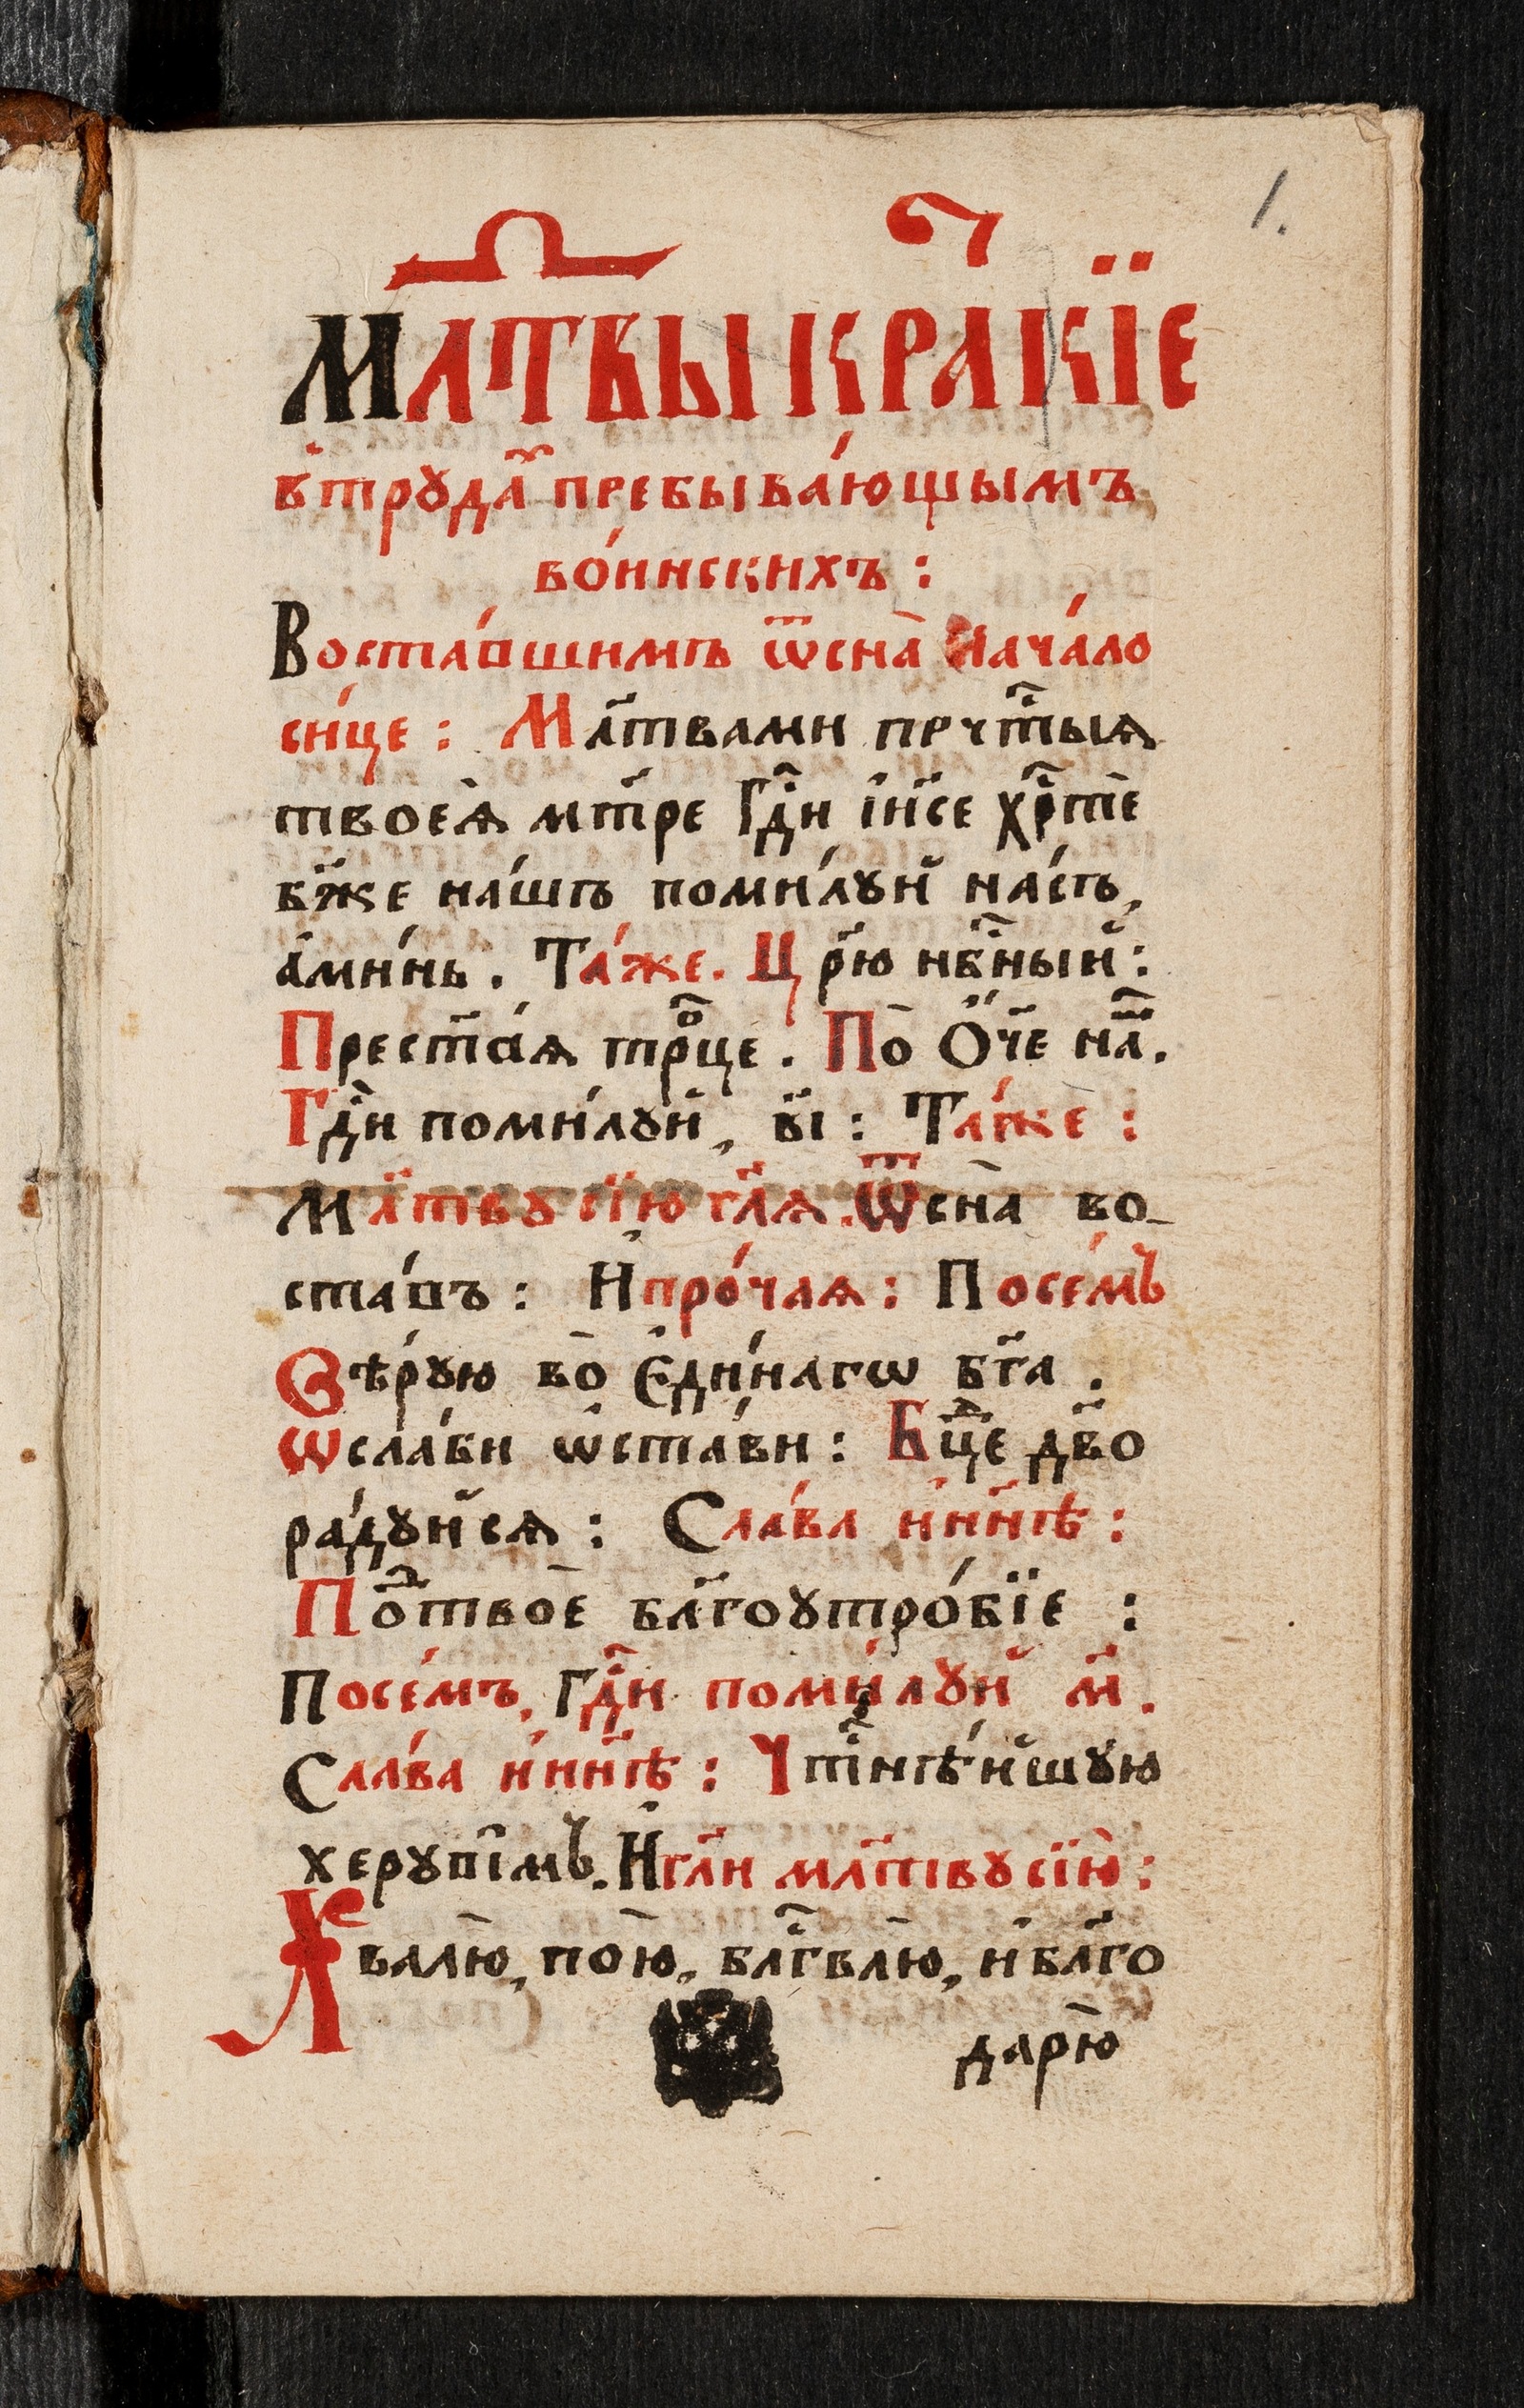 1.
МЛ҃ТВЫ КРА́ТКЇЕ
в̾трꙋда́хъ пребыва́ющымъ
во́инскихъ :
Воста́вшимъ ѿсна̀ Нача́ло
си́це : Мл҃твами пречⷭ҇тыѧ
твоеѧ̀ мт҃ре Гдⷭ҇и і҆и҃се хрⷭ҇тѐ
бж҃е на́шъ поми́лꙋй на́съ,
а҆ми́нь . Та́же . Цр҃ю нбⷭ҇ный :
Прест҃а́ѧ трⷪ҇це . По̀ Ѻ҆́ч҃е на́ш .
Гдⷭ҇и поми́лꙋй , в҃і : Та́же :
Мл҃твꙋ сїю̀ гл҃ѧ . Ѿсна̀ во-
ста́въ : И҆про́чаѧ : Посе́мъ
Вѣ́рꙋю во̀ Е҆ди́нагѡ бг҃а .
Ѡ҆сла́би ѡ҆ста́ви : Бцⷣе дв҃о
ра́дꙋйсѧ : Сла́ва и҆ нн҃ѣ :
Поⷣ твоѐ бл҃гоꙋтро́бїе :
Посе́мъ , Гдⷭ҇и поми́лꙋй м҃ .
Сла́ва и҆ нн҃ѣ : Чтⷭ҇нѣ́йшꙋю
херꙋві́мъ . И҆ гл҃и мл҃твꙋ сїю̀ :
Хвалю̀ , пою̀ , блгⷭ҇влю̀ , и҆ бл҃го
дарю̀